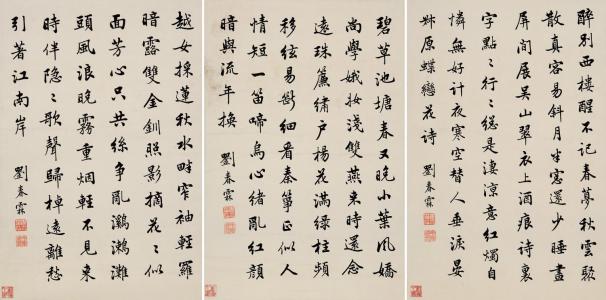 醉別西樓醒不記春夢秋雲聚
散真容易斜月半窗還少睡畫
屏間展吳山翠衣上酒痕詩裏
字點〻行〻總是淒涼意紅燭自
憐無好計夜寒空替人垂淚晏
叔原蝶戀花詩 劉春霖
碧草池塘春又晚小葉風嬌
尚學娥妝淺雙燕來時還念
遠珠簾繡戶楊花滿綠柱頻
移絃易斷細看秦箏正似人
情短一笛啼烏心緒亂紅顏
暗與流年換 劉春霖
越女採蓮秋水畔窄袖輕羅
暗露雙金釧照影摘花〻似
面芳心只共絲爭亂鸂鶒灘
頭風浪晚霧重烟輕不見來
時伴隱〻歌聲歸棹遠離愁
引著江南岸 劉春霖